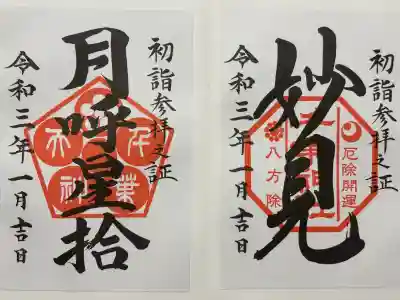 初詣参拝之証
月呼星拾
令和三年一月吉日
初詣参拝之証
妙見
厄除開運
千葉神社
八方除
令和三年一月吉日